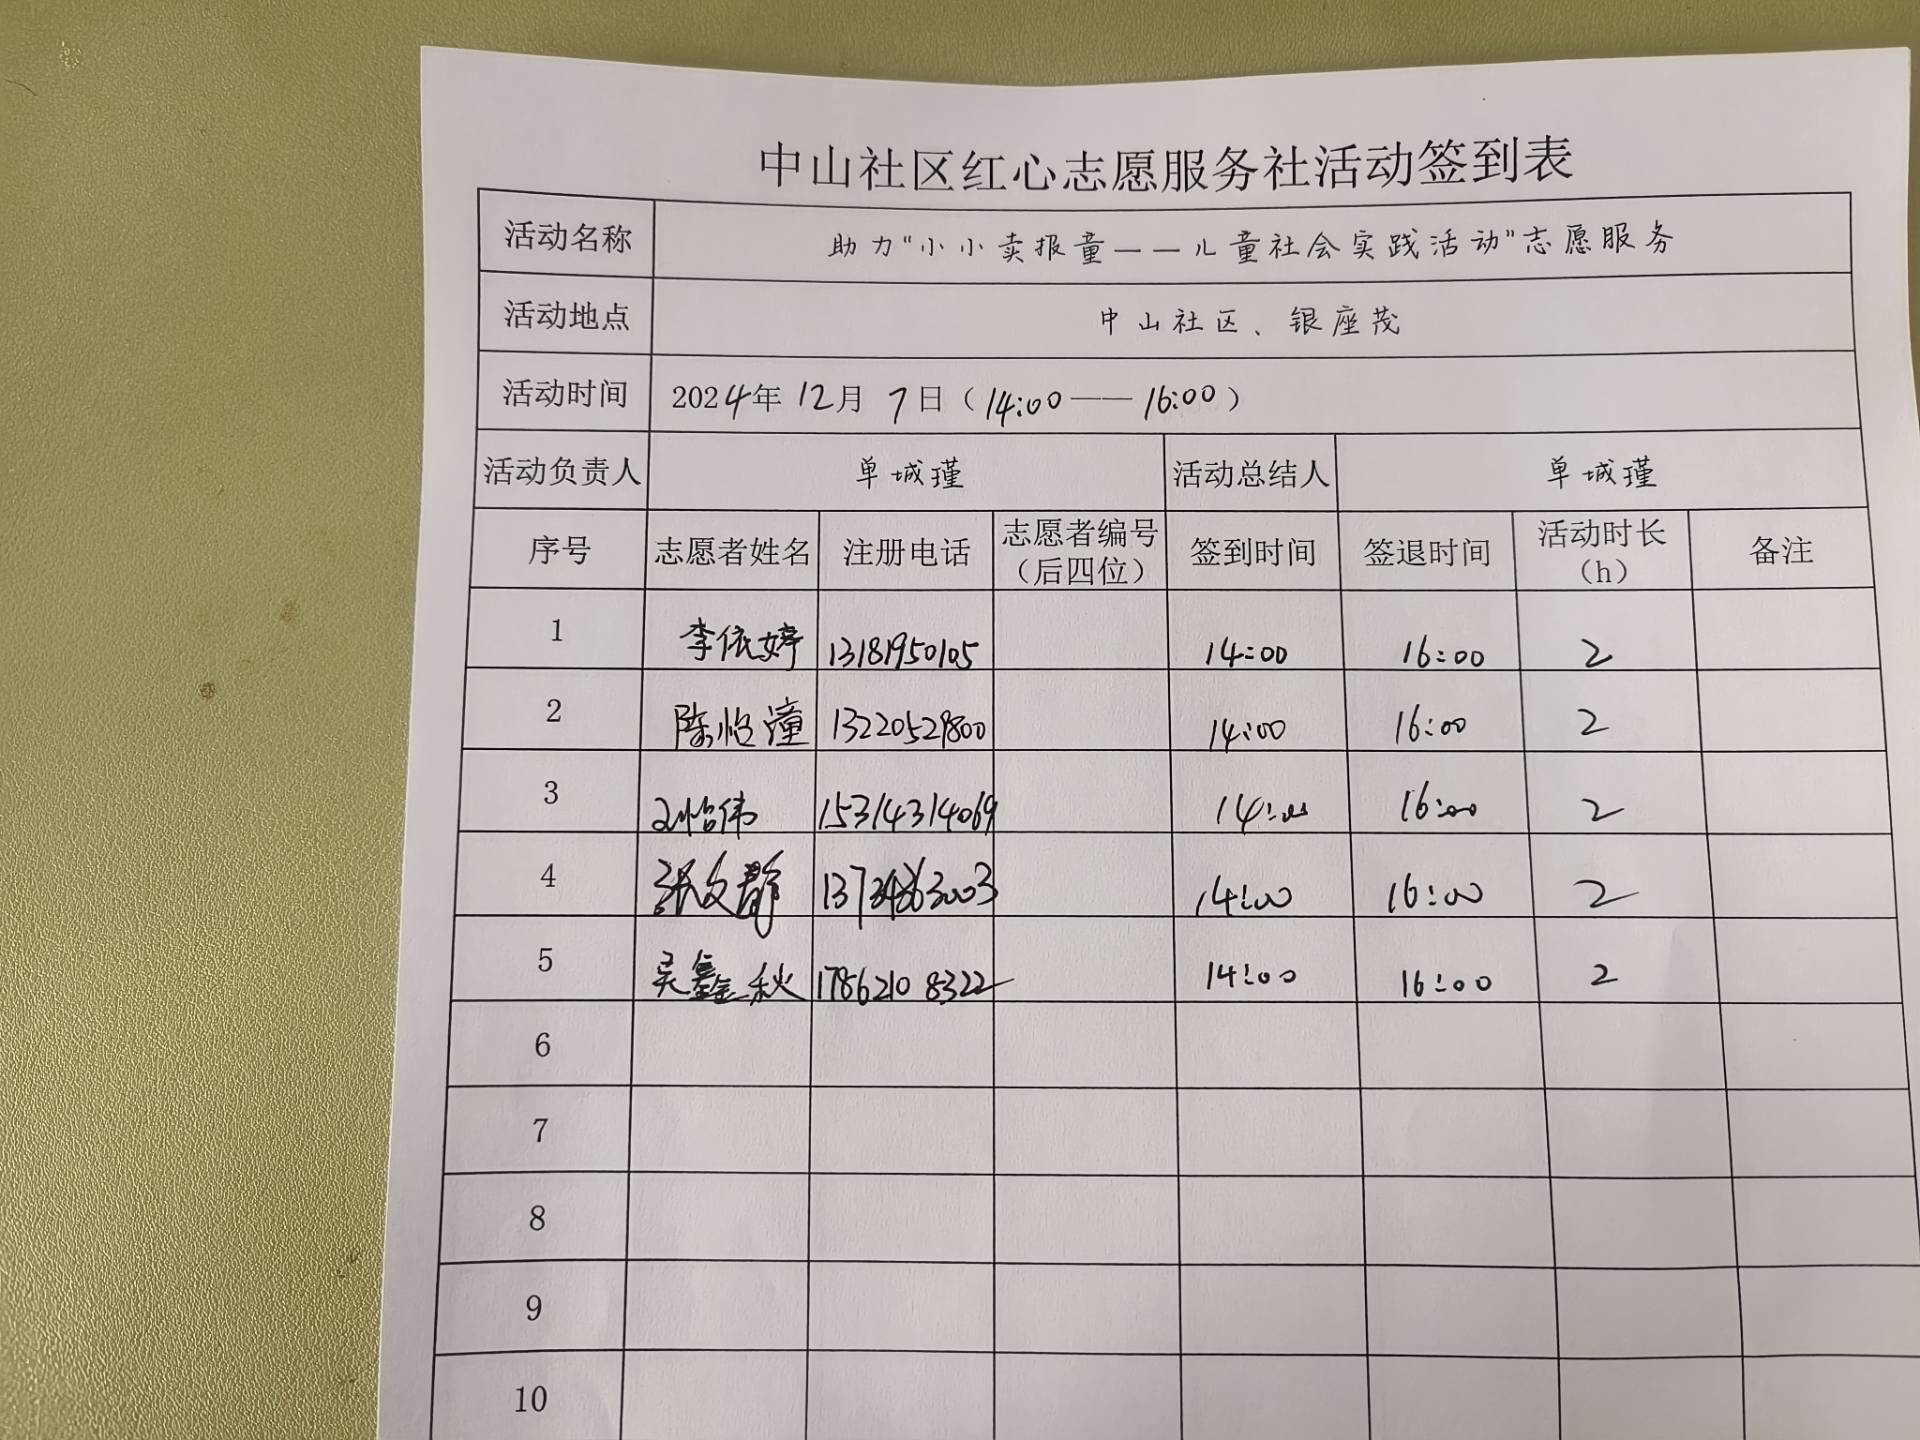 中山社区红心志愿服务社活动签到表
活动名称 助力"小小卖报童——儿童社会实践活动"志愿服务
活动地点 中山社区、银座茂
活动时间 2024年 12月 7日（14:00——16:00）
活动负责人 单城瑾 活动总结人 单城瑾
序号 志愿者姓名 注册电话 志愿者编号（后四位） 签到时间 签退时间 活动时长（h） 备注
1 李依婷 13181950105 14:00 16:00 2
2 陈怡潼 13220529800 14:00 16:00 2
3 刘怡伟 15314314069 14:00 16:00 2
4 张文静 14:00 16:00 2
5 吴鑫秋 17862108322 14:00 16:00 2
6
7
8
9
10